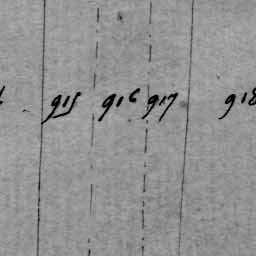 915 916 917 918